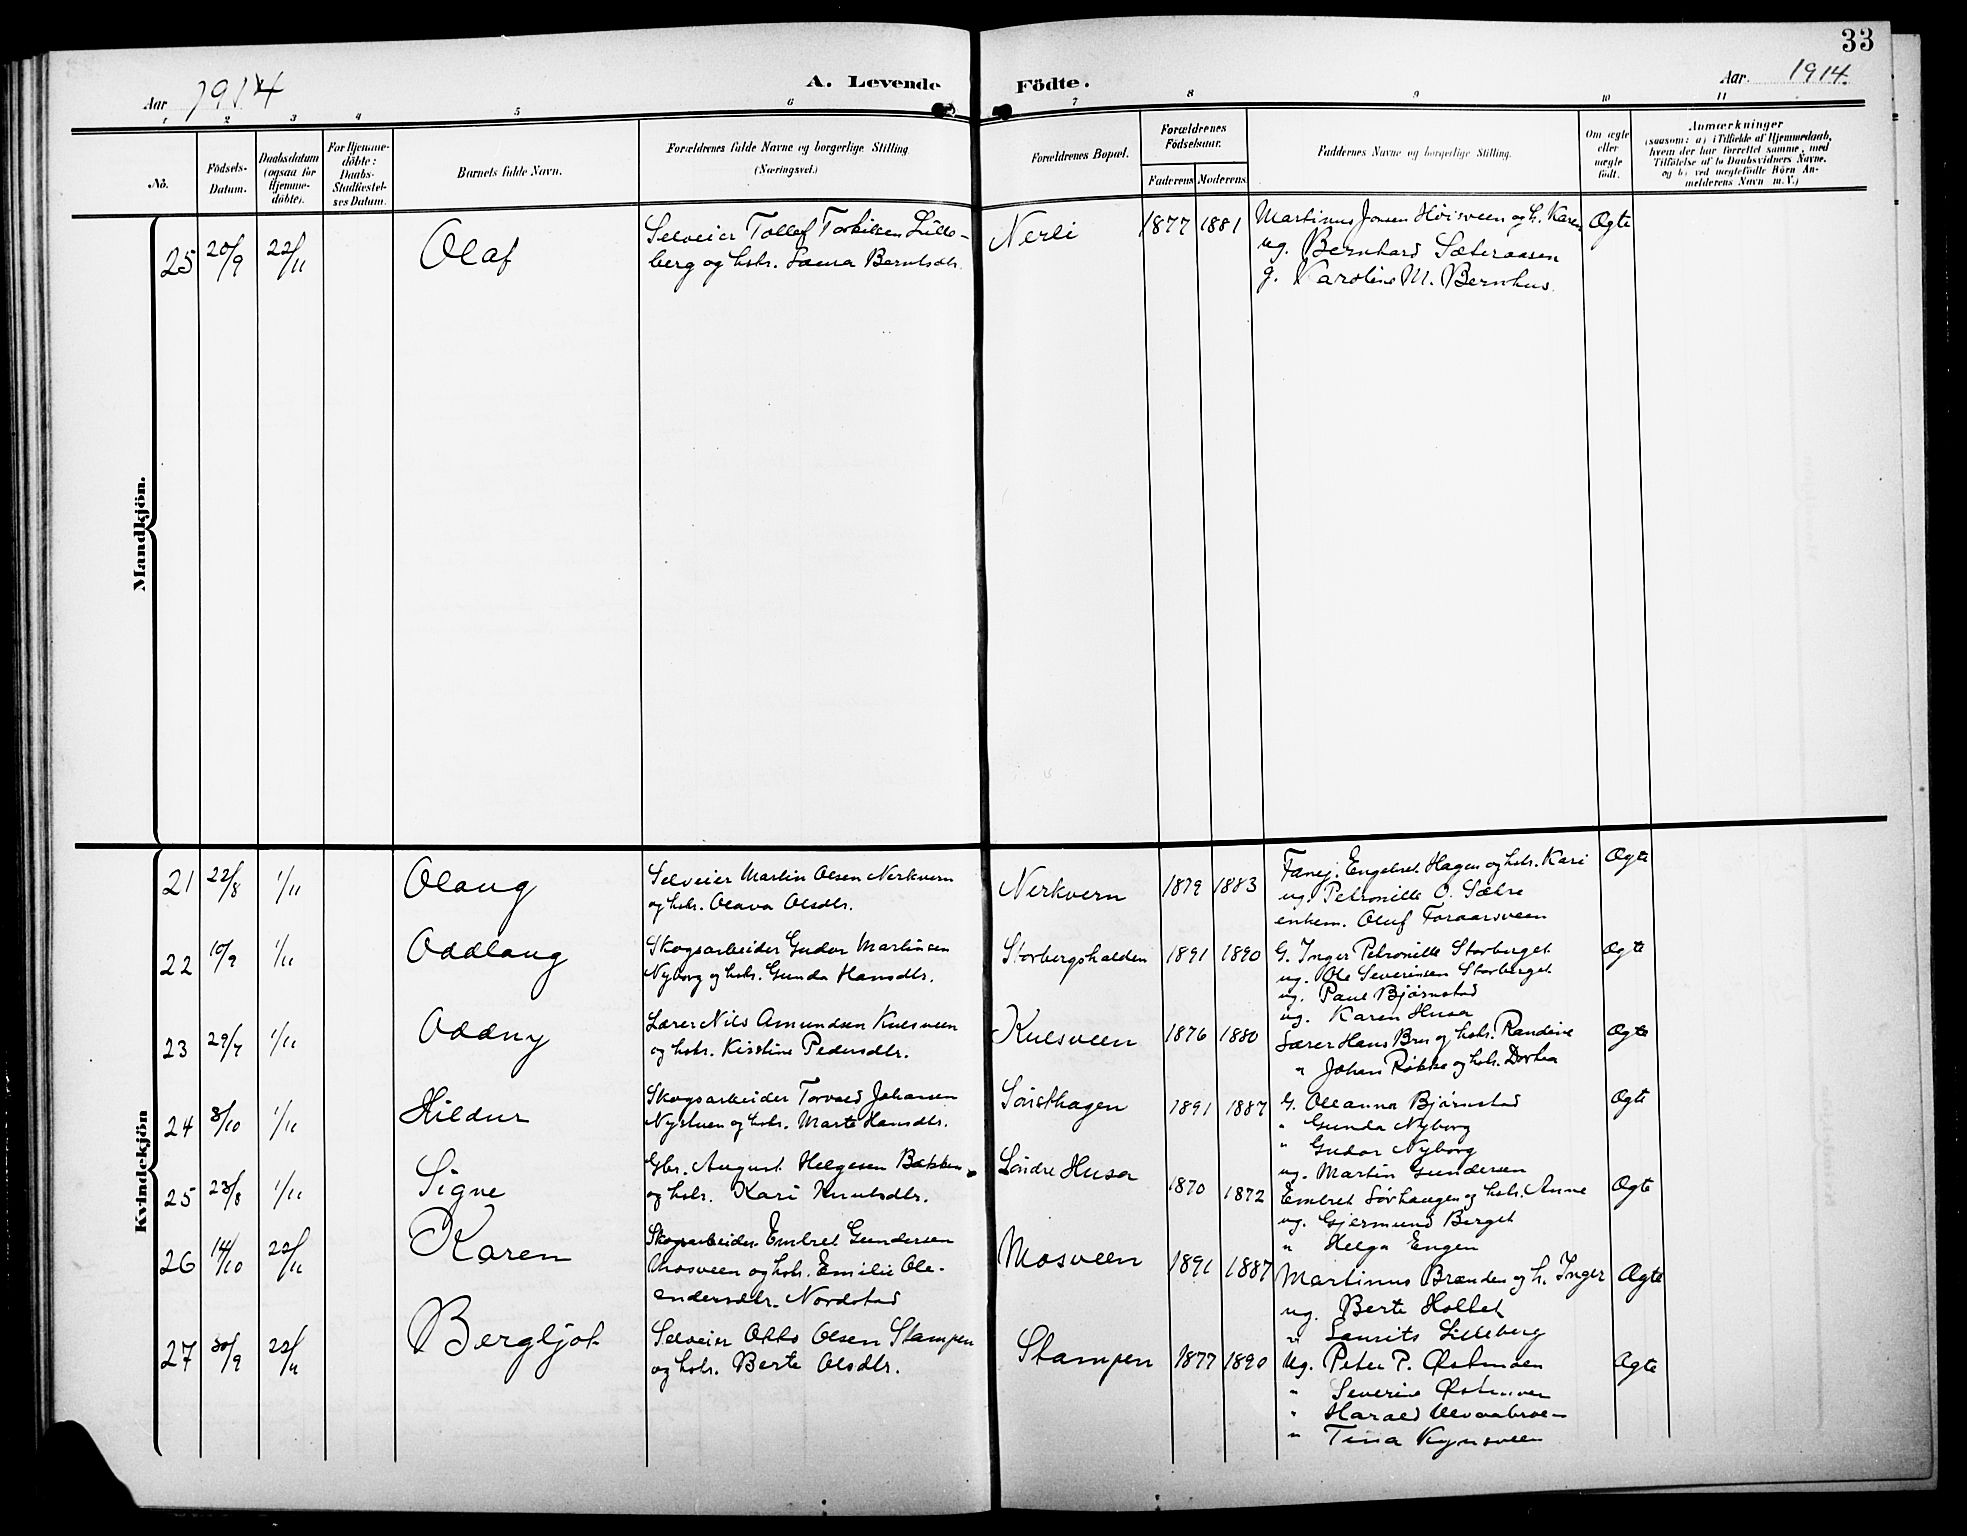 33
Aar 1914
A. Levende Födte.
Aar. 1914.
1 2 3 4 5 6 7 8 9 10 11
No.
Födsels-
Datum.
Daabsdatum
(ogsaa for
Hjemme-
döbte).
For Hjemme-
döbte:
Daabs-
Stadfæstel-
ses Datum.
Barnets fulde Navn.
Forældrenes fulde Navne og borgerlige Stilling
(Næringsvei.)
Forældrenes Bopæl.
Forældrenes
Födselsaar.
Faderens Moderens
Faddernes Navne og borgerlige Stilling.
Om ægte
eller
uægte
födt.
Anmærkninger
(saasom: a) i Tilfælde af Hjemmedaab,
hvem der har forrettet samme, med
Tilföielse af to Daabsvidners Navne,
og b) ved uægtefödte Börn An-
melderens Navn m. V.)
Mandkjön.
25 20/9 22/11 Olaf
Selveier Tollef Torkilsen Lille-
berg og hstr. Laura Berntsdtr.
Nerli 1877 1881
Martinus Jonsen Høisveen og h. Karen
ug. Bernhard Sæteraasen
g. Karoline M. Bernhus.
Ægte
Kvindekjön
21 22/8 1/11 Olaug
Selveier Martin Olsen Nerkvern
og hstr. Olava Olsdtr.
Nerkvern 1879 1883
Fanej. Engebret Hagen og hstr. Kari
ug. Petronille O. Sætre
enkem. Oluf Foraarsveen
Ægte
22 10/9 1/11 Oddlaug
Skogsarbeider Gudor Martinsen
Nyborg og hstr. Gunda Hansdtr.
Storbergshalden 1891 1890
G. Inger Petronille Storberget
ug. Ole Severinsen Storberget
ug. Paul Bjørnstad
ug. Karen Husa
Ægte
23 29/7 1/11 Oddny
Lærer Nils Amundsen Kulsveen
og hstr. Kirstine Pedersdtr.
Kulsveen 1876 1880
Lærer Hans Bru og hstr. Randine
" Johan Røkke og hstr. Dorthea
Ægte
24 3/10 1/11 Hildur
Skogsarbeider Torvald Johansen
Nystuen og hstr. Marte Hansdtr.
Sønsthagen 1891 1887
G. Oleanna Bjørnstad
" Gunda Nyborg
" Gudor Nyborg
ug. Martin Gundersen
Ægte
25 23/8 1/11 Signe
Gbr. August Helgesen Bækken
og hstr. Kari Knutsdtr.
Søndre Husa 1870 1872
Embret Sørhaugen og hstr. Anne
ug. Gjermund Berget
" Helga Engen
Ægte
26 14/10 22/11 Karen
Skogsarbeider Embret Gundersen
Mosveen og hstr. Emilie Ole-
andersdtr. Nordstad
Mosveen 1891 1887
Martinus Brænden og h. Inger
ug. Berte Holtet
" Laurits Lilleberg
Ægte
27 30/9 22/11 Bergljot
Selveier Otto Olsen Stampen
og hstr. Berte Olsdtr.
Stampen 1877 1890
Ug. Peter P. Østmoen
" Severine
" Harald
" Tina
Ægte